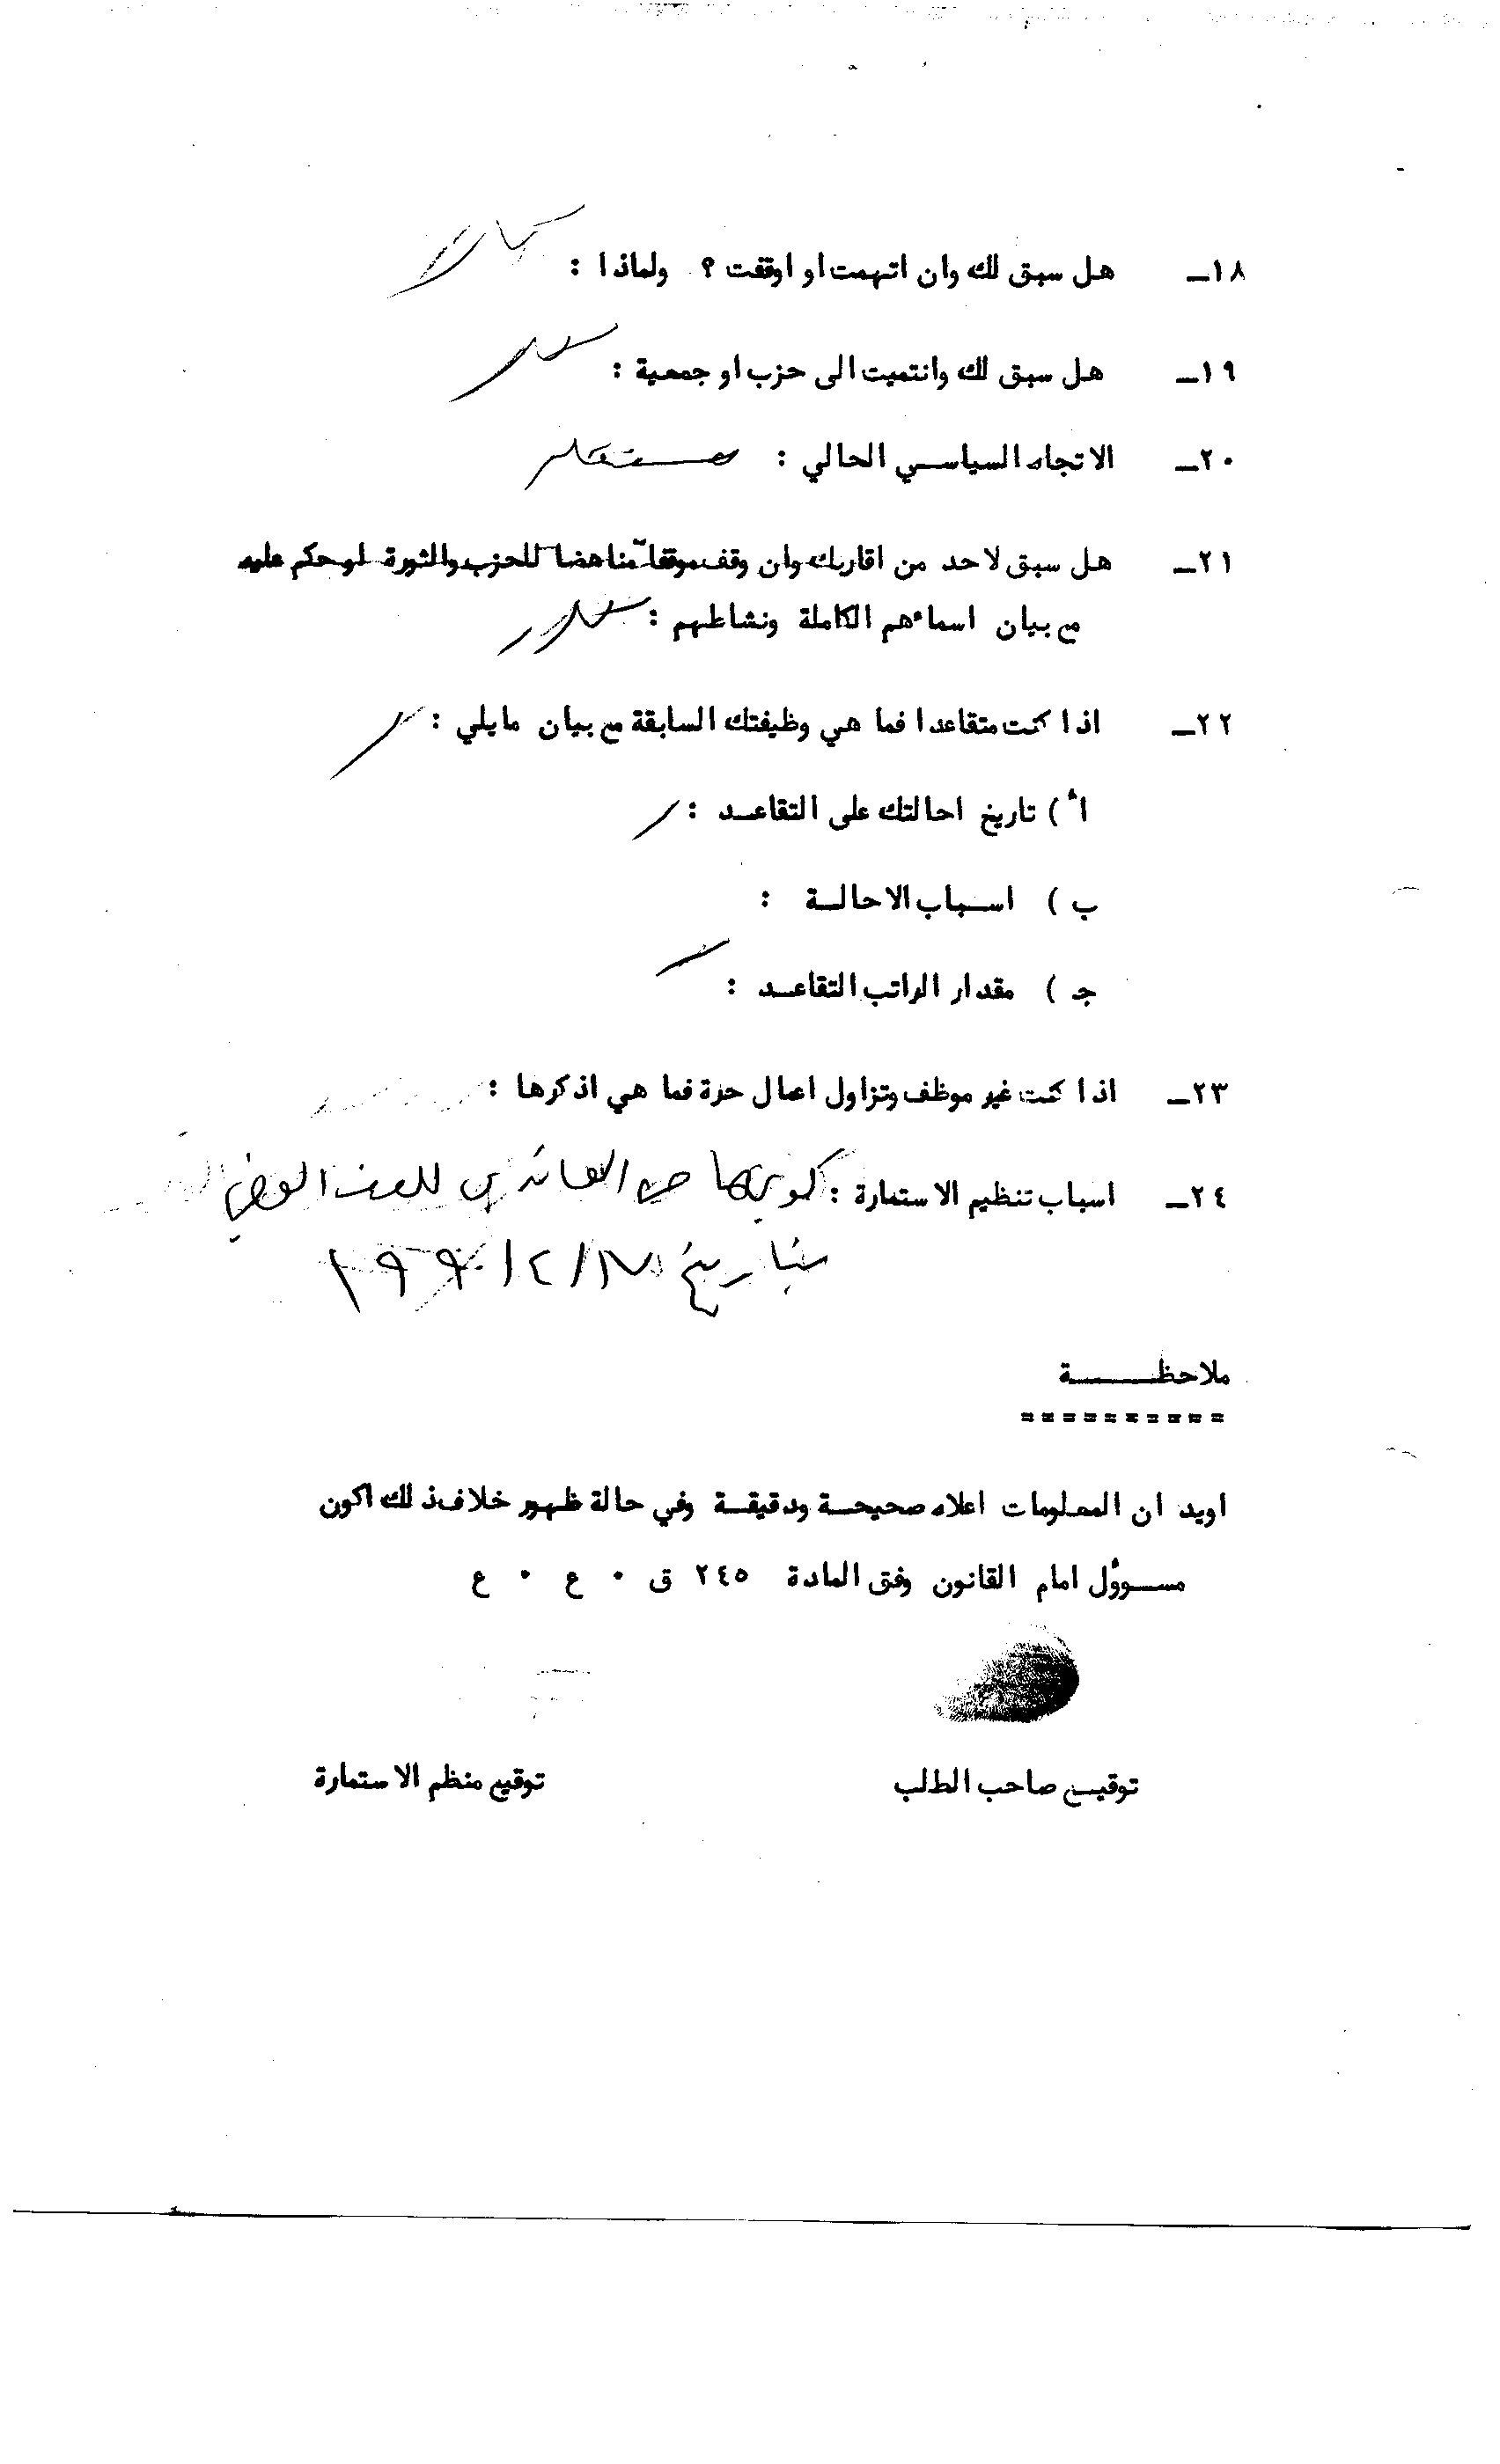 ١٨ـ هل سبق لك وان اتهمت او اوقفت ؟ ولماذا : كلا
١٩ـ هل سبق لك وانتميت الى حزب او جمعية :
٢٠ـ الاتجاه السياسي الحالي : مستقل
٢١ـ هل سبق لاحد من اقاربك وان وقف موقفا مناهضا للحزب والثورة او حكم عليه
مع بيان اسماءهم الكاملة ونشاطهم :
٢٢ـ اذا كنت متقاعدا فما هي وظيفتك السابقة مع بيان مايلي :
أ ) تاريخ احالتك على التقاعد :
ب ) اسباب الاحالة :
جـ ) مقدار الراتب التقاعد :
٢٣ـ اذا كنت غير موظف وتزاول اعمال حرة فما هي اذكرها :
٢٤ـ اسباب تنظيم الاستمارة : كونها من العائدين للصف الوطني
بتاريخ ١٩٩٠/٢/
ملاحظة
==========
اويد ان المعلومات اعلاه صحيحة ودقيقة وفي حالة ظهور خلاف ذلك اكون
مسوؤل امام القانون وفق المادة ٢٤٥ ق ٠ ع ٠ ع
توقيع صاحب الطلب توقيع منظم الاستمارة